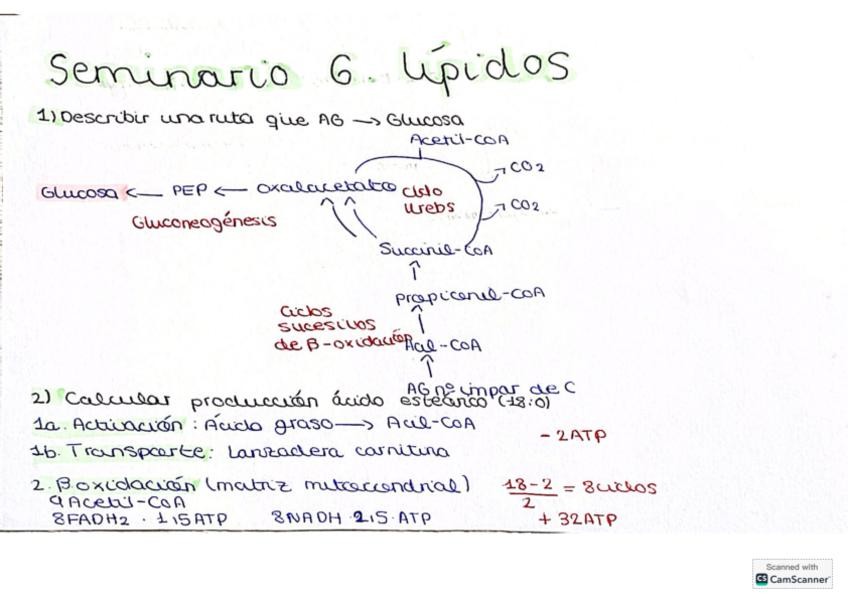 Seminario 6. Lípidos
1) Describir una ruta que AG → Glucosa
Acetil-CoA
CO2
Glucosa ← PEP ← Oxalacetato
ciclo
Krebs
CO2
Gluconeogénesis
Succinil-CoA
Propionil-CoA
Ciclos
sucesivos
de β-oxidación
Acil-CoA
AG nº impar de C
2) Calcular producción ácido esteárico (18:0)
1a. Activación: Ácido graso → Acil-CoA
- 2ATP
1b. Transporte: Lanzadera carnitina
2. β oxidación (matriz mitocondrial)
18-2 / 2 = 8 ciclos
9 Acetil-CoA
8FADH2 · 1,5 ATP 8NADH · 2,5 · ATP
+ 32ATP
Scanned with
CS CamScanner